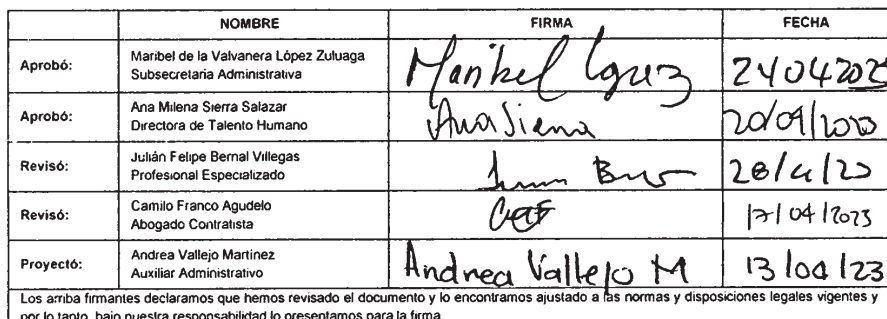 NOMBRE FIRMA FECHA
Aprobó: Maribel de la Valvanera López Zuluaga
Subsecretaria Administrativa
Maribel López 24042023
Aprobó: Ana Milena Sierra Salazar
Directora de Talento Humano
Ana Sierra
Revisó: Julián Felipe Bernal Villegas
Profesional Especializado
Revisó: Camilo Franco Agudelo
Abogado Contratista
17/04/2023
Proyectó: Andrea Vallejo Martinez
Auxiliar Administrativo
Andrea Vallejo M 13/04/23
Los arriba firmantes declaramos que hemos revisado el documento y lo encontramos ajustado a las normas y disposiciones legales vigentes y
por lo tanto, bajo nuestra responsabilidad lo presentamos para la firma